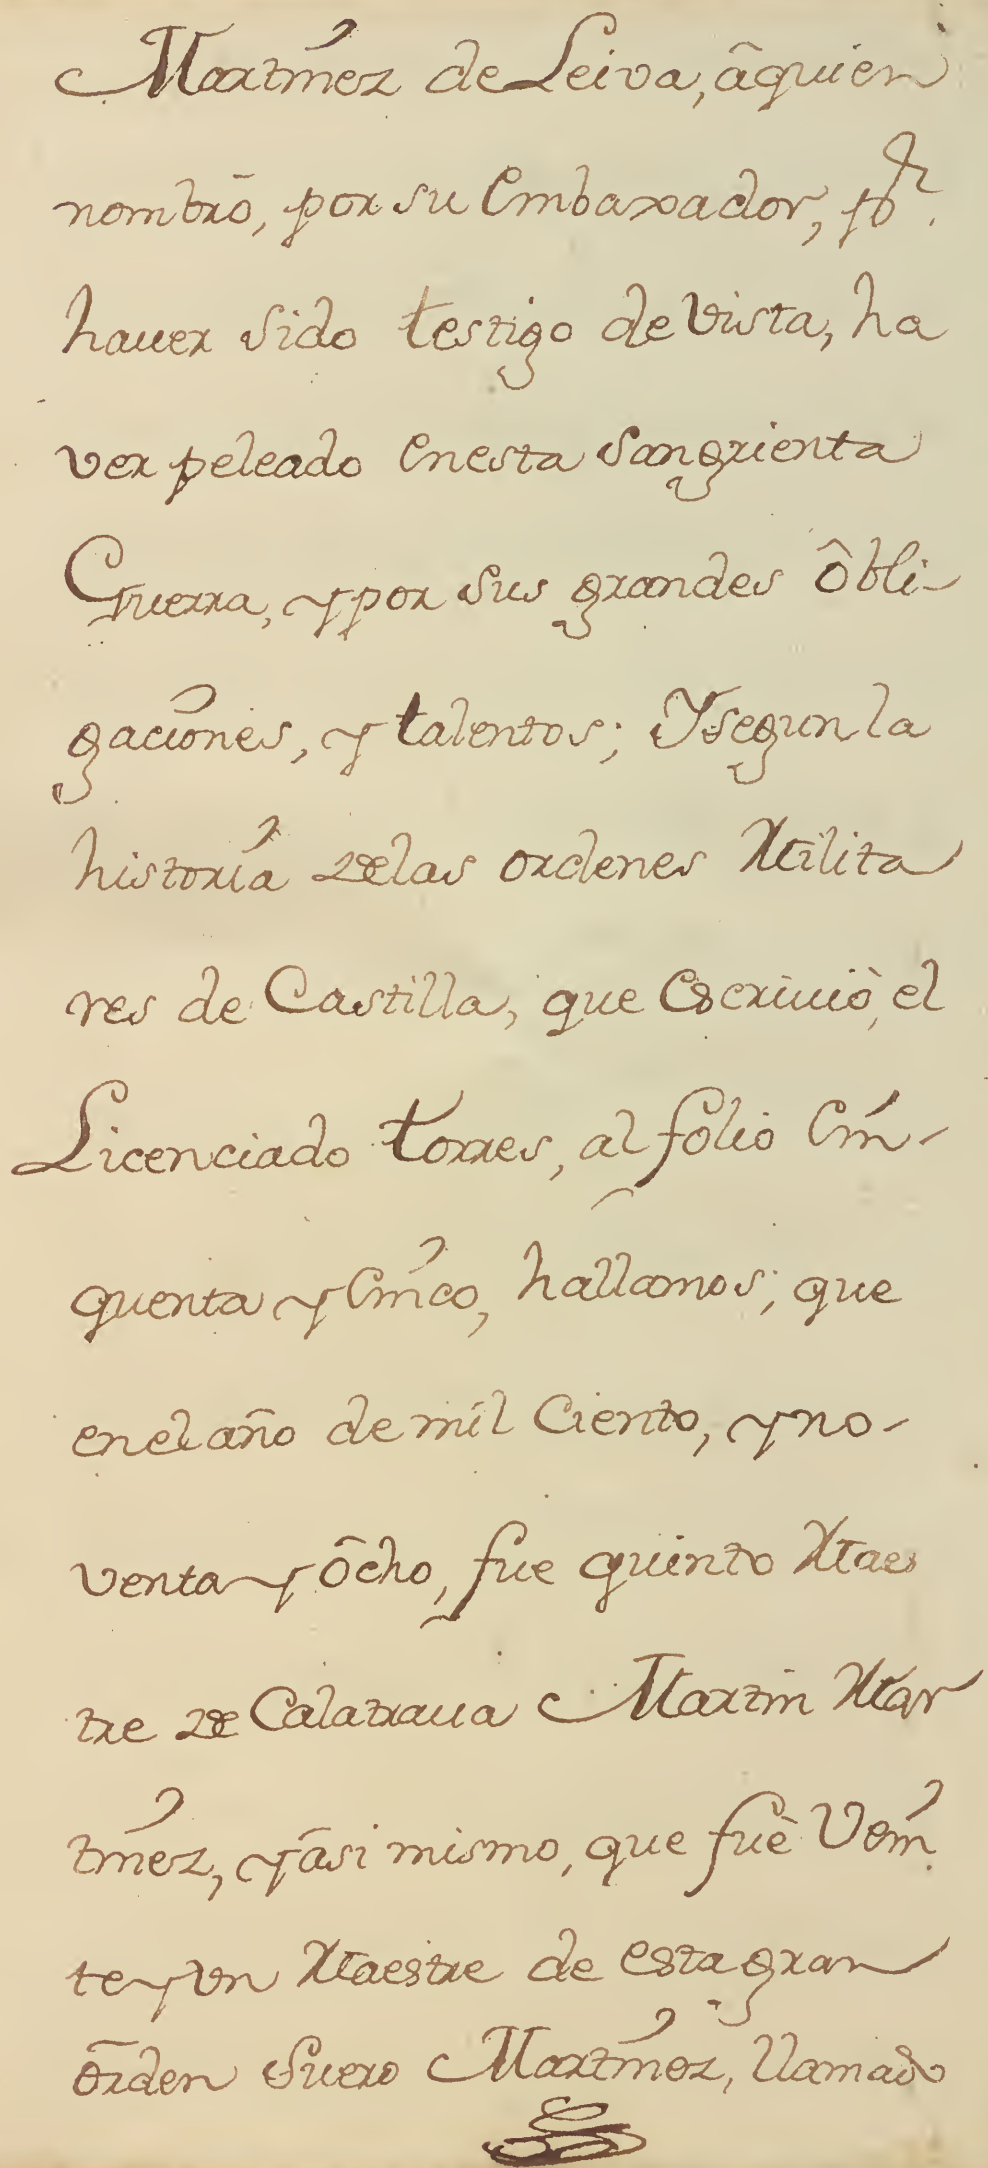 Martinez de Leiva, âquien
nombrō, por su Embaxador, pr.
hauer sido testigo de vista, ha
ver peleado enesta sangrienta
Guerra, y por sus grandes ôbli-
gaciones, y talentos; Ysegun la
historia de las ordenes Milita
res de Castilla, que Escriuiò, el
Licenciado torres, al folio Cin-
quenta y Cinco, hallamos; que
enel año de mil Ciento, y no-
venta y ôcho, fue quinto Maes
tre de Calatraua Martin Mar
tinez, y āsi mismo, que fuè Vein
te y Vn Maestre de esta gran
ōrden Suero Martinez, llamado